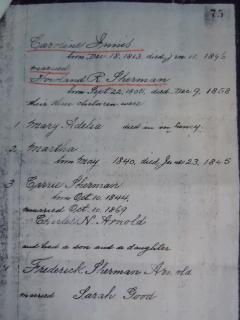 75
Caroline Innis
born Dec 18, 1813, died Jan 11, 1896
married
Howland R. Sherman
born Sept 22, 1801, died Nov 9, 1858
their three children were
1 Mary Adelia died in infancy.
2 Martha
born May 1840, died June 23, 1845
3 Carrie Sherman
born Oct 10, 1844,
married Oct. 10, 1869
Charles N. Arnold
and had a son and a daughter
Frederick Sherman Arnold
married Sarah Good